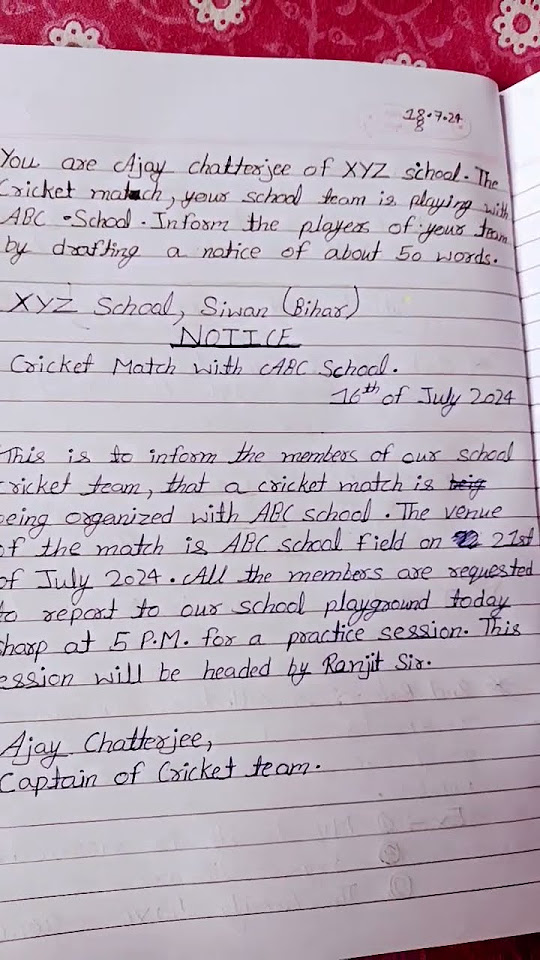 18.7.24
You are Ajay chatterjee of XYZ school. The
Cricket match, your school team is playing with
ABC - School. Inform the players of your team
by drafting a notice of about 50 words.
XYZ School, Siwan (Bihar)
NOTICE
Cricket Match with ABC School.
16th of July 2024
This is to inform the members of our school
cricket team, that a cricket match is beig
being organized with ABC school. The venue
of the match is ABC school field on 22 21st
of July 2024. All the members are requested
to report to our school playground today
sharp at 5 P.M. for a practice session. This
session will be headed by Ranjit Sir.
Ajay Chatterjee,
Captain of Cricket team.